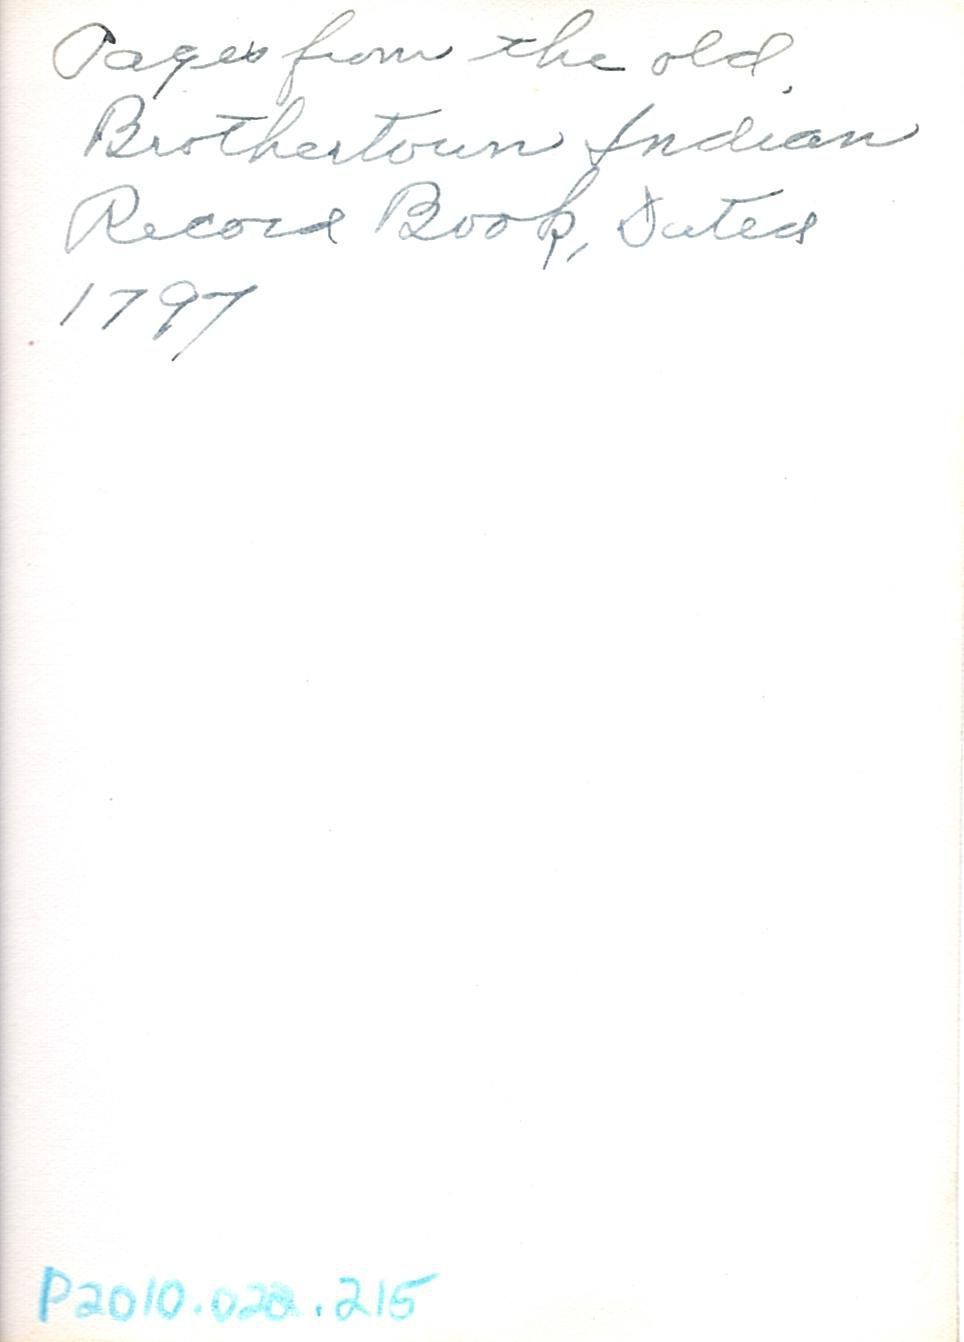 Pages from the old
Brothertown Indian
Record Book, Dated
1797
P2010.028.215